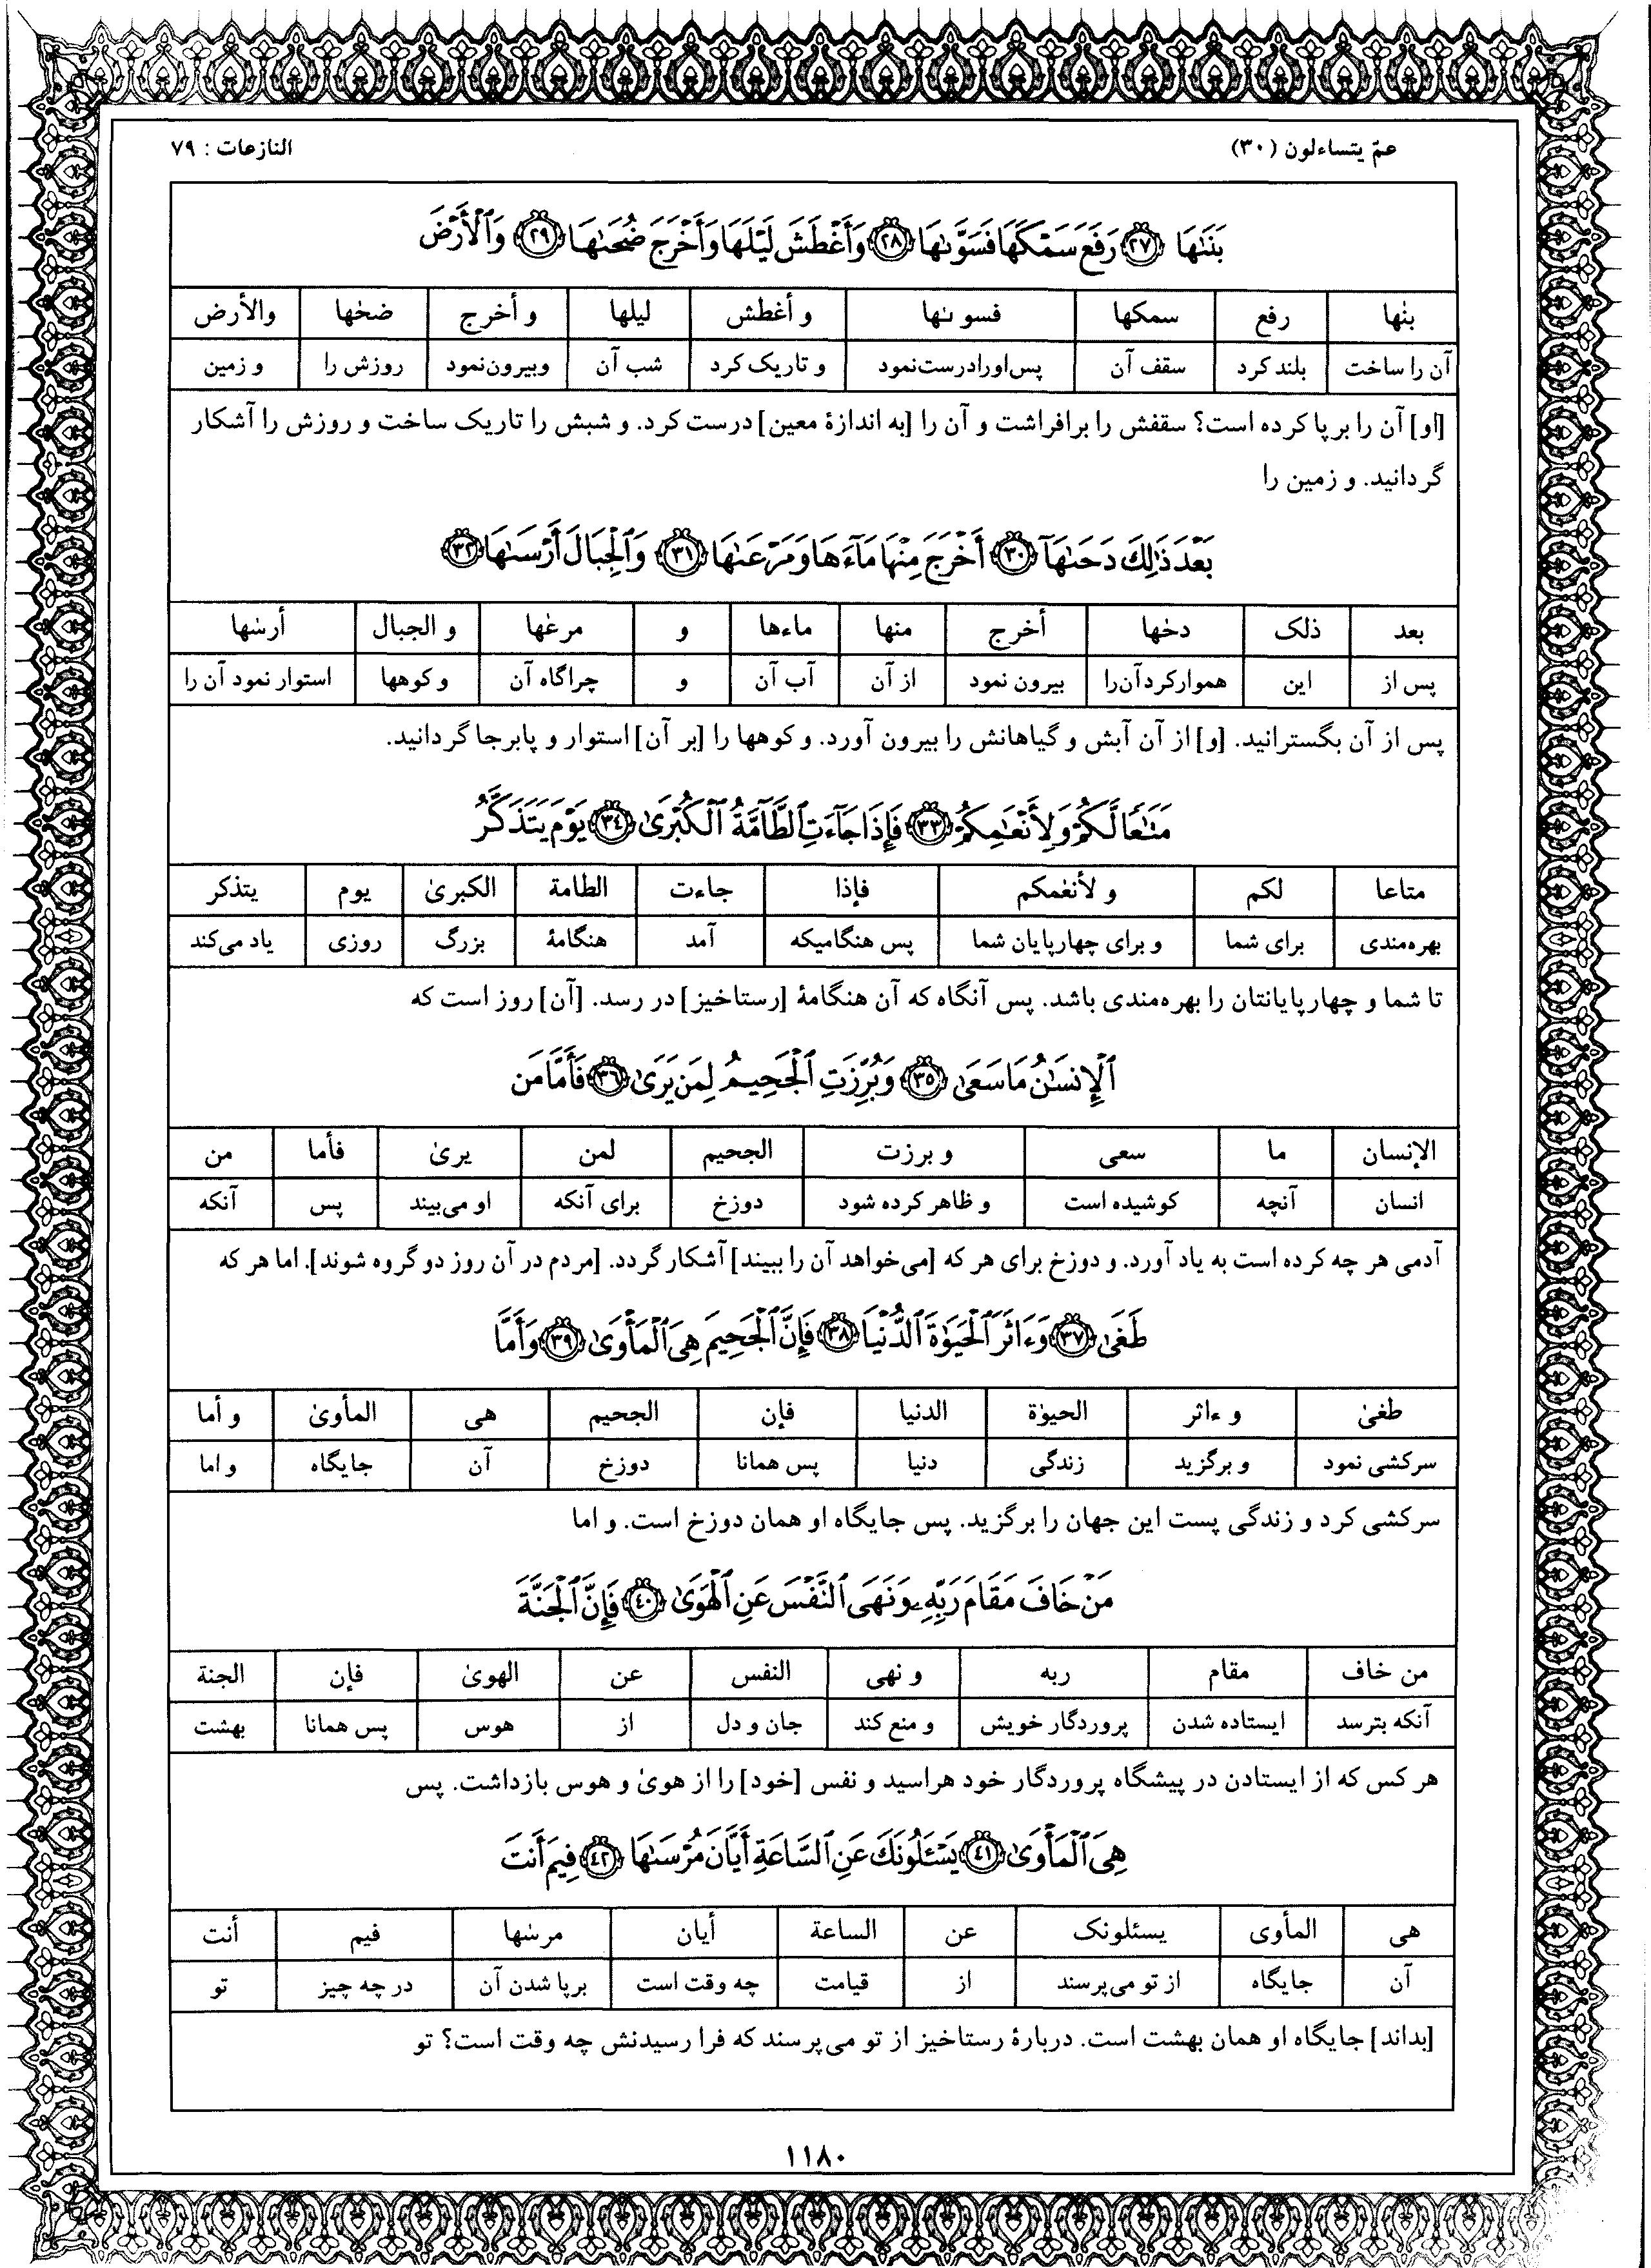 عمّ يتساءلون (۳۰)
النازعات : ۷۹
بَنَىٰهَا ﴿٢٧﴾ رَفَعَ سَمْكَهَا فَسَوَّىٰهَا ﴿٢٨﴾ وَأَغْطَشَ لَيْلَهَا وَأَخْرَجَ ضُحَىٰهَا ﴿٢٩﴾ وَٱلْأَرْضَ
بنٰها رفع سمکها فسوىٰها و أغطش ليلها و أخرج ضحٰها والأرض
آن را ساخت بلند کرد سقف آن پس‌اورادرست‌نمود و تاریک کرد شب آن وبیرون‌نمود روزش را و زمین
[او] آن را بر پا کرده است؟ سقفش را برافراشت و آن را [به اندازهٔ معین] درست کرد. و شبش را تاریک ساخت و روزش را آشکار
گردانید. و زمین را
بَعْدَ ذَٰلِكَ دَحَىٰهَآ ﴿٣٠﴾ أَخْرَجَ مِنْهَا مَآءَهَا وَمَرْعَىٰهَا ﴿٣١﴾ وَٱلْجِبَالَ أَرْسَىٰهَا ﴿٣٢﴾
بعد ذلک دحٰها أخرج منها ماءها و مرعٰها و الجبال أرسٰها
پس از این هموارکردآن‌را بیرون نمود از آن آب آن و چراگاه آن و کوهها استوار نمود آن را
پس از آن بگسترانید. [و] از آن آبش و گیاهانش را بیرون آورد. و کوهها را [بر آن] استوار و پابرجا گردانید.
مَتَـٰعًا لَّكُمْ وَلِأَنْعَـٰمِكُمْ ﴿٣٣﴾ فَإِذَا جَآءَتِ ٱلطَّآمَّةُ ٱلْكُبْرَىٰ ﴿٣٤﴾ يَوْمَ يَتَذَكَّرُ
متاعا لکم و لأنعٰمکم فإذا جاءت الطامة الکبریٰ يوم يتذكر
بهره‌مندی برای شما و برای چهارپایان شما پس هنگامیکه آمد هنگامهٔ بزرگ روزی یاد می‌کند
تا شما و چهارپایانتان را بهره‌مندی باشد. پس آنگاه که آن هنگامهٔ [رستاخیز] در رسد. [آن] روز است که
ٱلْإِنسَـٰنُ مَا سَعَىٰ ﴿٣٥﴾ وَبُرِّزَتِ ٱلْجَحِيمُ لِمَن يَرَىٰ ﴿٣٦﴾ فَأَمَّا مَن
الإنسان ما سعی و برزت الجحيم لمن یریٰ فأما من
انسان آنچه کوشیده است و ظاهر کرده شود دوزخ برای آنکه او می‌بیند پس آنکه
آدمی هر چه کرده است به یاد آورد. و دوزخ برای هر که [می‌خواهد آن را ببیند] آشکار گردد. [مردم در آن روز دو گروه شوند]. اما هر که
طَغَىٰ ﴿٣٧﴾ وَءَاثَرَ ٱلْحَيَوٰةَ ٱلدُّنْيَا ﴿٣٨﴾ فَإِنَّ ٱلْجَحِيمَ هِىَ ٱلْمَأْوَىٰ ﴿٣٩﴾ وَأَمَّا
طغیٰ و ءاثر الحیوٰة الدنیا فإن الجحیم هی المأویٰ و أما
سرکشی نمود و برگزید زندگی دنیا پس همانا دوزخ آن جایگاه و اما
سرکشی کرد و زندگی پست این جهان را برگزید. پس جایگاه او همان دوزخ است. و اما
مَنْ خَافَ مَقَامَ رَبِّهِۦ وَنَهَى ٱلنَّفْسَ عَنِ ٱلْهَوَىٰ ﴿٤٠﴾ فَإِنَّ ٱلْجَنَّةَ
من خاف مقام ربه و نهی النفس عن الهویٰ فإن الجنة
آنکه بترسد ایستاده شدن پروردگار خویش و منع کند جان و دل از هوس پس همانا بهشت
هر کس که از ایستادن در پیشگاه پروردگار خود هراسید و نفس [خود] را از هویٰ و هوس بازداشت. پس
هِىَ ٱلْمَأْوَىٰ ﴿٤١﴾ يَسْـَٔلُونَكَ عَنِ ٱلسَّاعَةِ أَيَّانَ مُرْسَىٰهَا ﴿٤٢﴾ فِيمَ أَنتَ
هی المأوی يسئلونک عن الساعة أيان مرسٰها فيم أنت
آن جایگاه از تو می‌پرسند از قیامت چه وقت است برپا شدن آن در چه چیز تو
[بداند] جایگاه او همان بهشت است. دربارهٔ رستاخیز از تو می‌پرسند که فرا رسیدنش چه وقت است؟ تو
۱۱۸۰